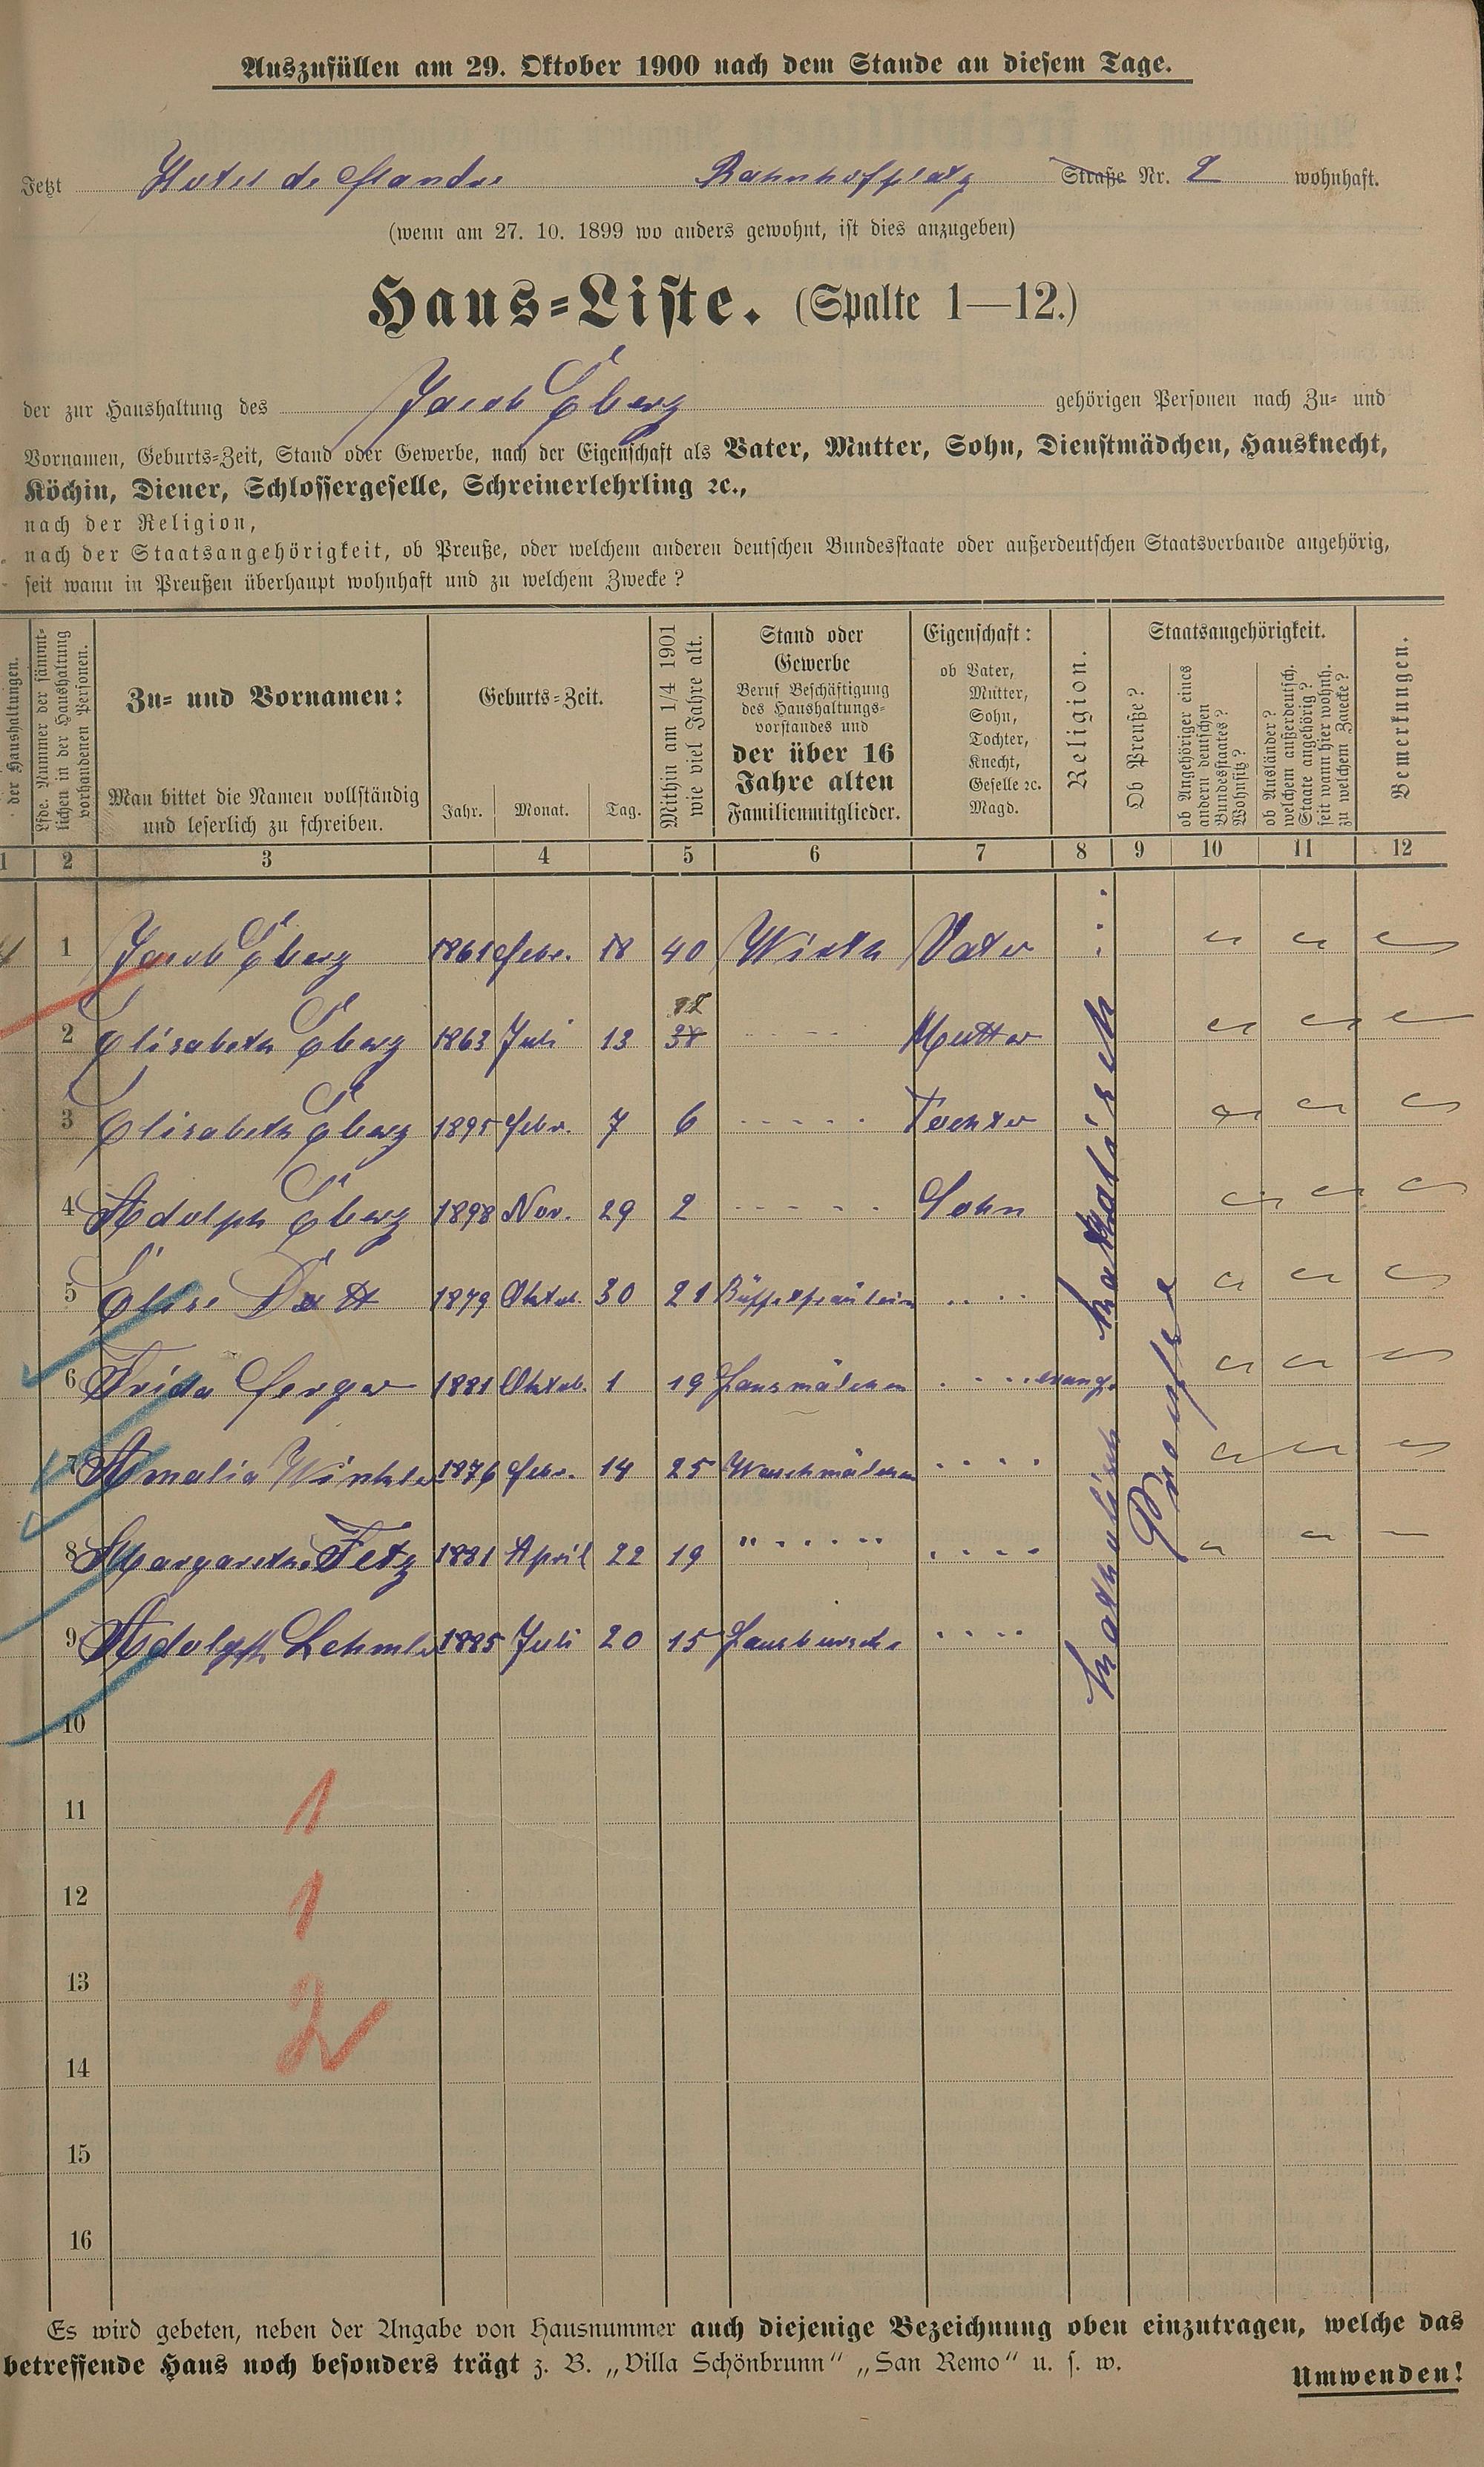 Auszufüllen am 29. Oktober 1900 nach dem Stande an diesem Tage.
Jetzt Hotel de Flandre Bahnhofplatz Straße Nr. 2 wohnhaft.
(wenn am 27. 10. 1899 wo anders gewohnt, ist dies anzugeben)
Haus-Liste. (Spalte 1—12.)
der zur Haushaltung des Jacob Eberz gehörigen Personen nach Zu- und
Vornamen, Geburts-Zeit, Stand oder Gewerbe, nach der Eigenschaft als Vater, Mutter, Sohn, Dienstmädchen, Hausknecht,
Köchin, Diener, Schlossergeselle, Schreinerlehrling ꝛc.,
nach der Religion,
nach der Staatsangehörigkeit, ob Preuße, oder welchem anderen deutschen Bundesstaate oder außerdeutschen Staatsverbande angehörig,
seit wann in Preußen überhaupt wohnhaft und zu welchem Zwecke?
der Haushaltungen.
Lfde. Nummer der sämmt-
lichen in der Haushaltung
vorhandenen Personen.
Zu- und Vornamen:
Man bittet die Namen vollständig
und leserlich zu schreiben.
Geburts-Zeit.
Jahr. Monat. Tag.
Mithin am 1/4 1901
wie viel Jahre alt.
Stand oder
Gewerbe
Beruf Beschäftigung
des Haushaltungs-
vorstandes und
der über 16
Jahre alten
Familienmitglieder.
Eigenschaft:
ob Vater,
Mutter,
Sohn,
Tochter,
Knecht,
Geselle ꝛc.
Magd.
Religion.
Staatsangehörigkeit.
Ob Preuße?
ob Angehöriger eines
andern deutschen
Bundesstaates?
Wohnsitz?
ob Ausländer?
welchem außerdeutsch.
Staate angehörig?
seit wann hier wohnh.
zu welchem Zwecke?
Bemerkungen.
1 2 3 4 5 6 7 8 9 10 11 12
1 Jacob Eberz 1861 Febr. 18 40 Wirth Vater
2 Elisabeth Eberz 1863 Juli 13 38 Mutter
3 Elisabeth Eberz 1895 Febr. 7 6 Tochter
4 Adolph Eberz 1898 Nov. 29 2 Sohn
katholisch
5 Elise 1879 Oktob. 30 21 Büffetfräulein
6 Frida Ferger 1881 Oktob. 1 19 Hausmädchen evang.
7 Amalia Winkler 1876 Febr. 14 25 Waschmädchen
8 Margarethe Fetz 1881 April 22 19 "
9 Adolph 1885 Juli 20 15 Hausbursche
katholisch
Preuße
10
11 1
12 1
13
14 2
15
16
Es wird gebeten, neben der Angabe von Hausnummer auch diejenige Bezeichnung oben einzutragen, welche das
betreffende Haus noch besonders trägt z. B. „Villa Schönbrunn“ „San Remo“ u. s. w.
Umwenden!